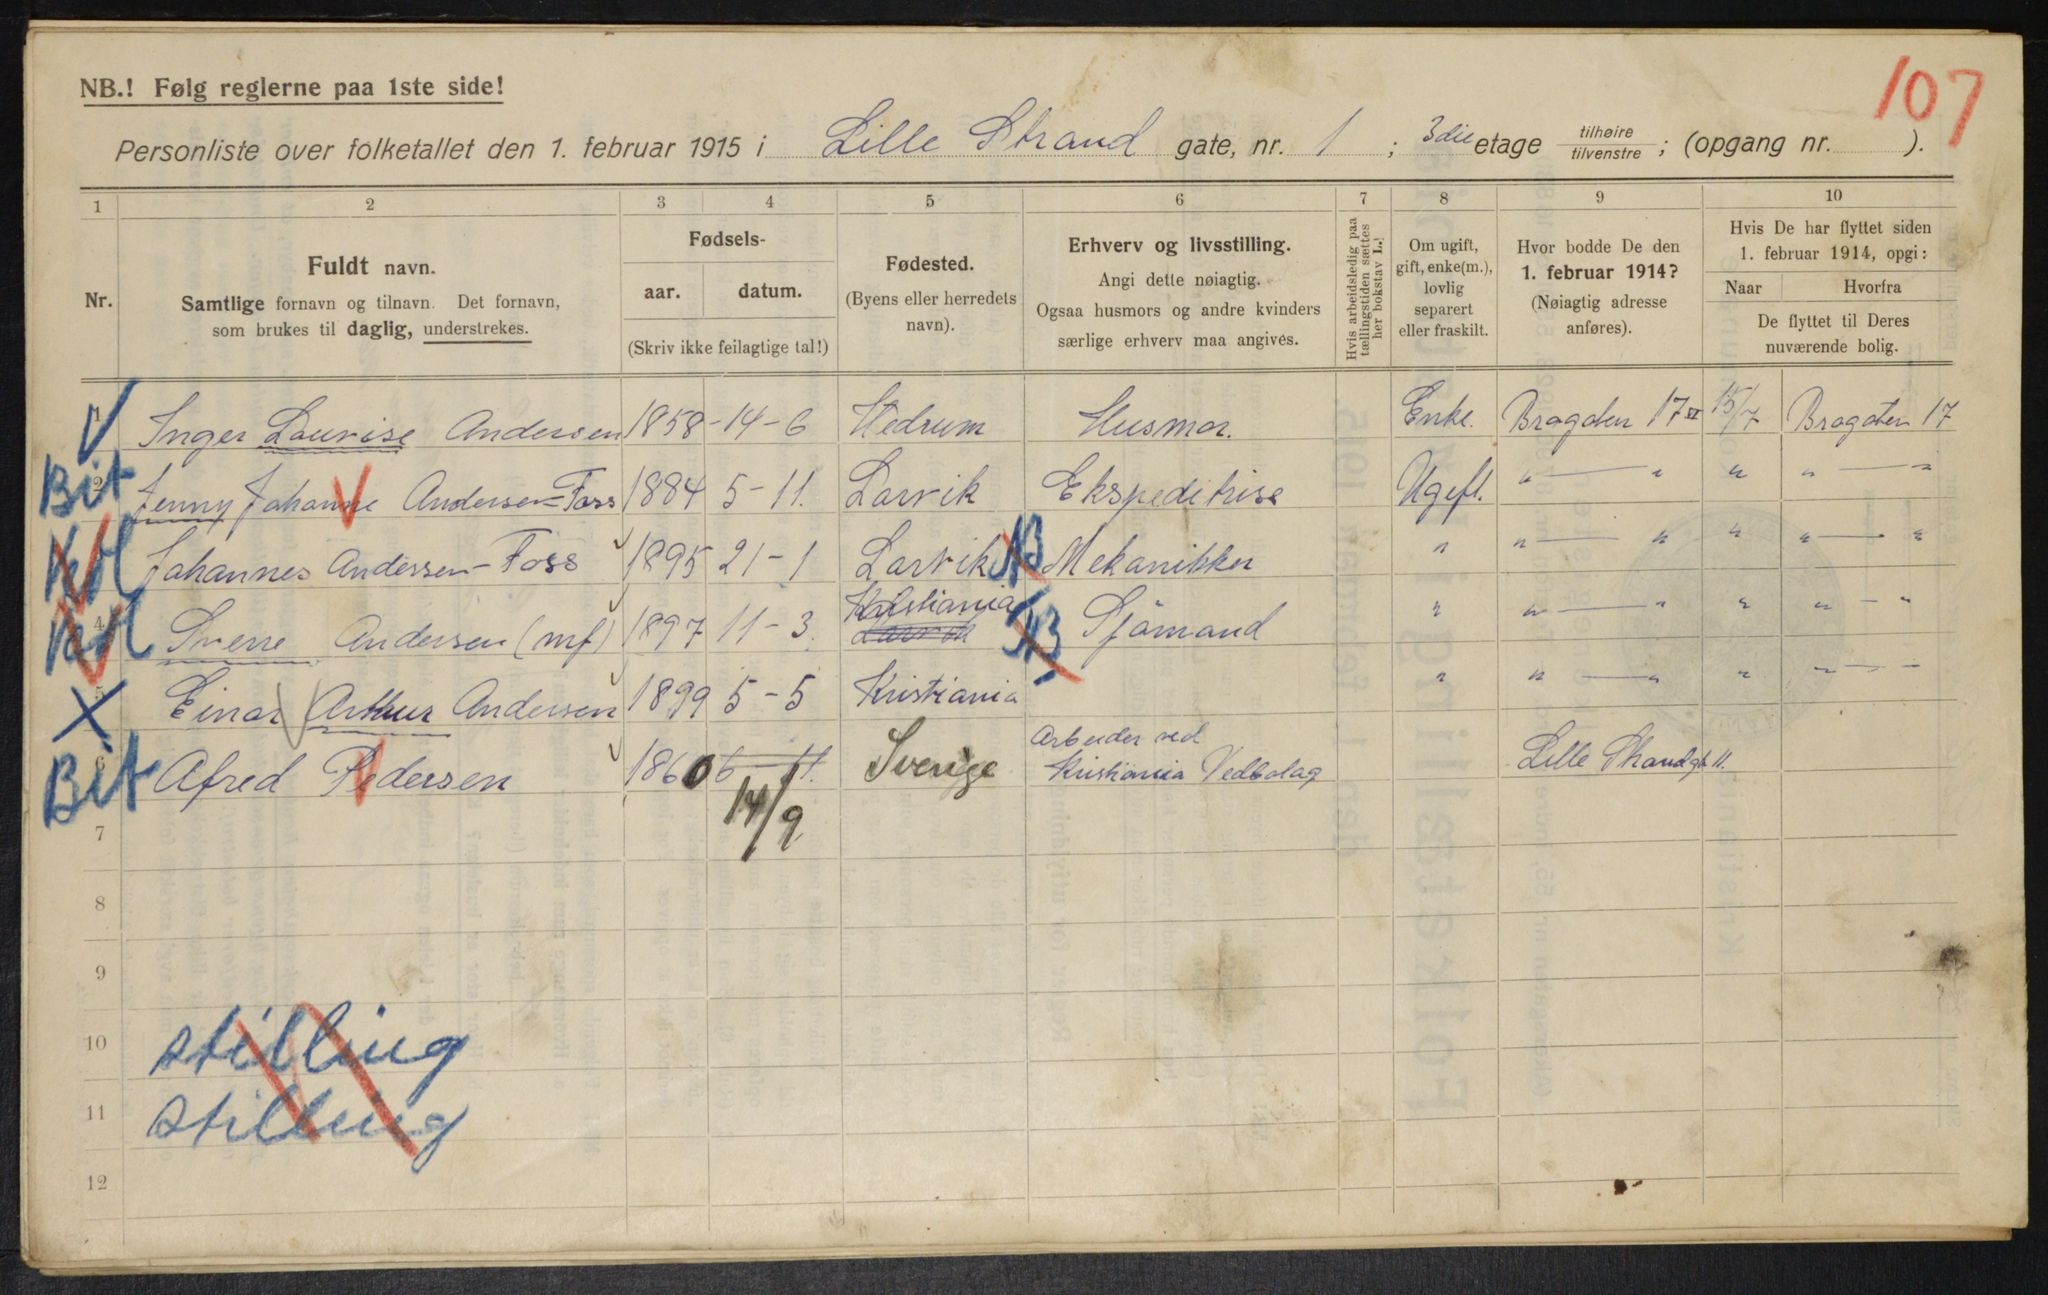 107
NB.! Følg reglerne paa 1ste side!
Personliste over folketallet den 1. februar 1915 i Lille Strand gate, nr. 1 ; 3die etage tilhøire / tilvenstre ; (opgang nr. ).
1 2 3 4 5 6 7 8 9 10
Nr.
Fuldt navn.
Samtlige fornavn og tilnavn. Det fornavn,
som brukes til daglig, understrekes.
Fødsels-
aar. datum.
(Skriv ikke feilagtige tal!)
Fødested.
(Byens eller herredets
navn).
Erhverv og livsstilling.
Angi dette nøiagtig.
Ogsaa husmors og andre kvinders
særlige erhverv maa angives.
Hvis arbeidsledig paa
tællingstiden sættes
her bokstav L.!
Om ugift,
gift, enke(m.),
lovlig
separert
eller fraskilt.
Hvor bodde De den
1. februar 1914?
(Nøiagtig adresse
anføres).
Hvis De har flyttet siden
1. februar 1914, opgi:
Naar Hvorfra
De flyttet til Deres
nuværende bolig.
1 Inger Lovise Andersen 1858 - 14 - 6 Hedrum Husmor. Enke. Bragaten 17 VI 15/7 Bragaten 17
Bit 2 Jenny Johanne Andersen-Foss 1884 5 - 11. Larvik Ekspeditrise Ugift. " — " " " — "
Johannes Andersen-Foss 1895 21 - 1 Larvik NB Mekanikker " " — " " " — "
4 Sverre Andersen (mf) 1897 11 - 3. Kristiania Larvik NB Sjømand " " — " " " — "
X 5 Einar Arthur Andersen 1899 5 - 5 Kristiania " " — " " " — "
Bit 6 Afred Pedersen 1860 6 - 11. 14/9 Sverige Arbeider ved
Kristiania Vedbolag Lille Strandgt 11.
7
8
9
10 stilling
11 stilling
12